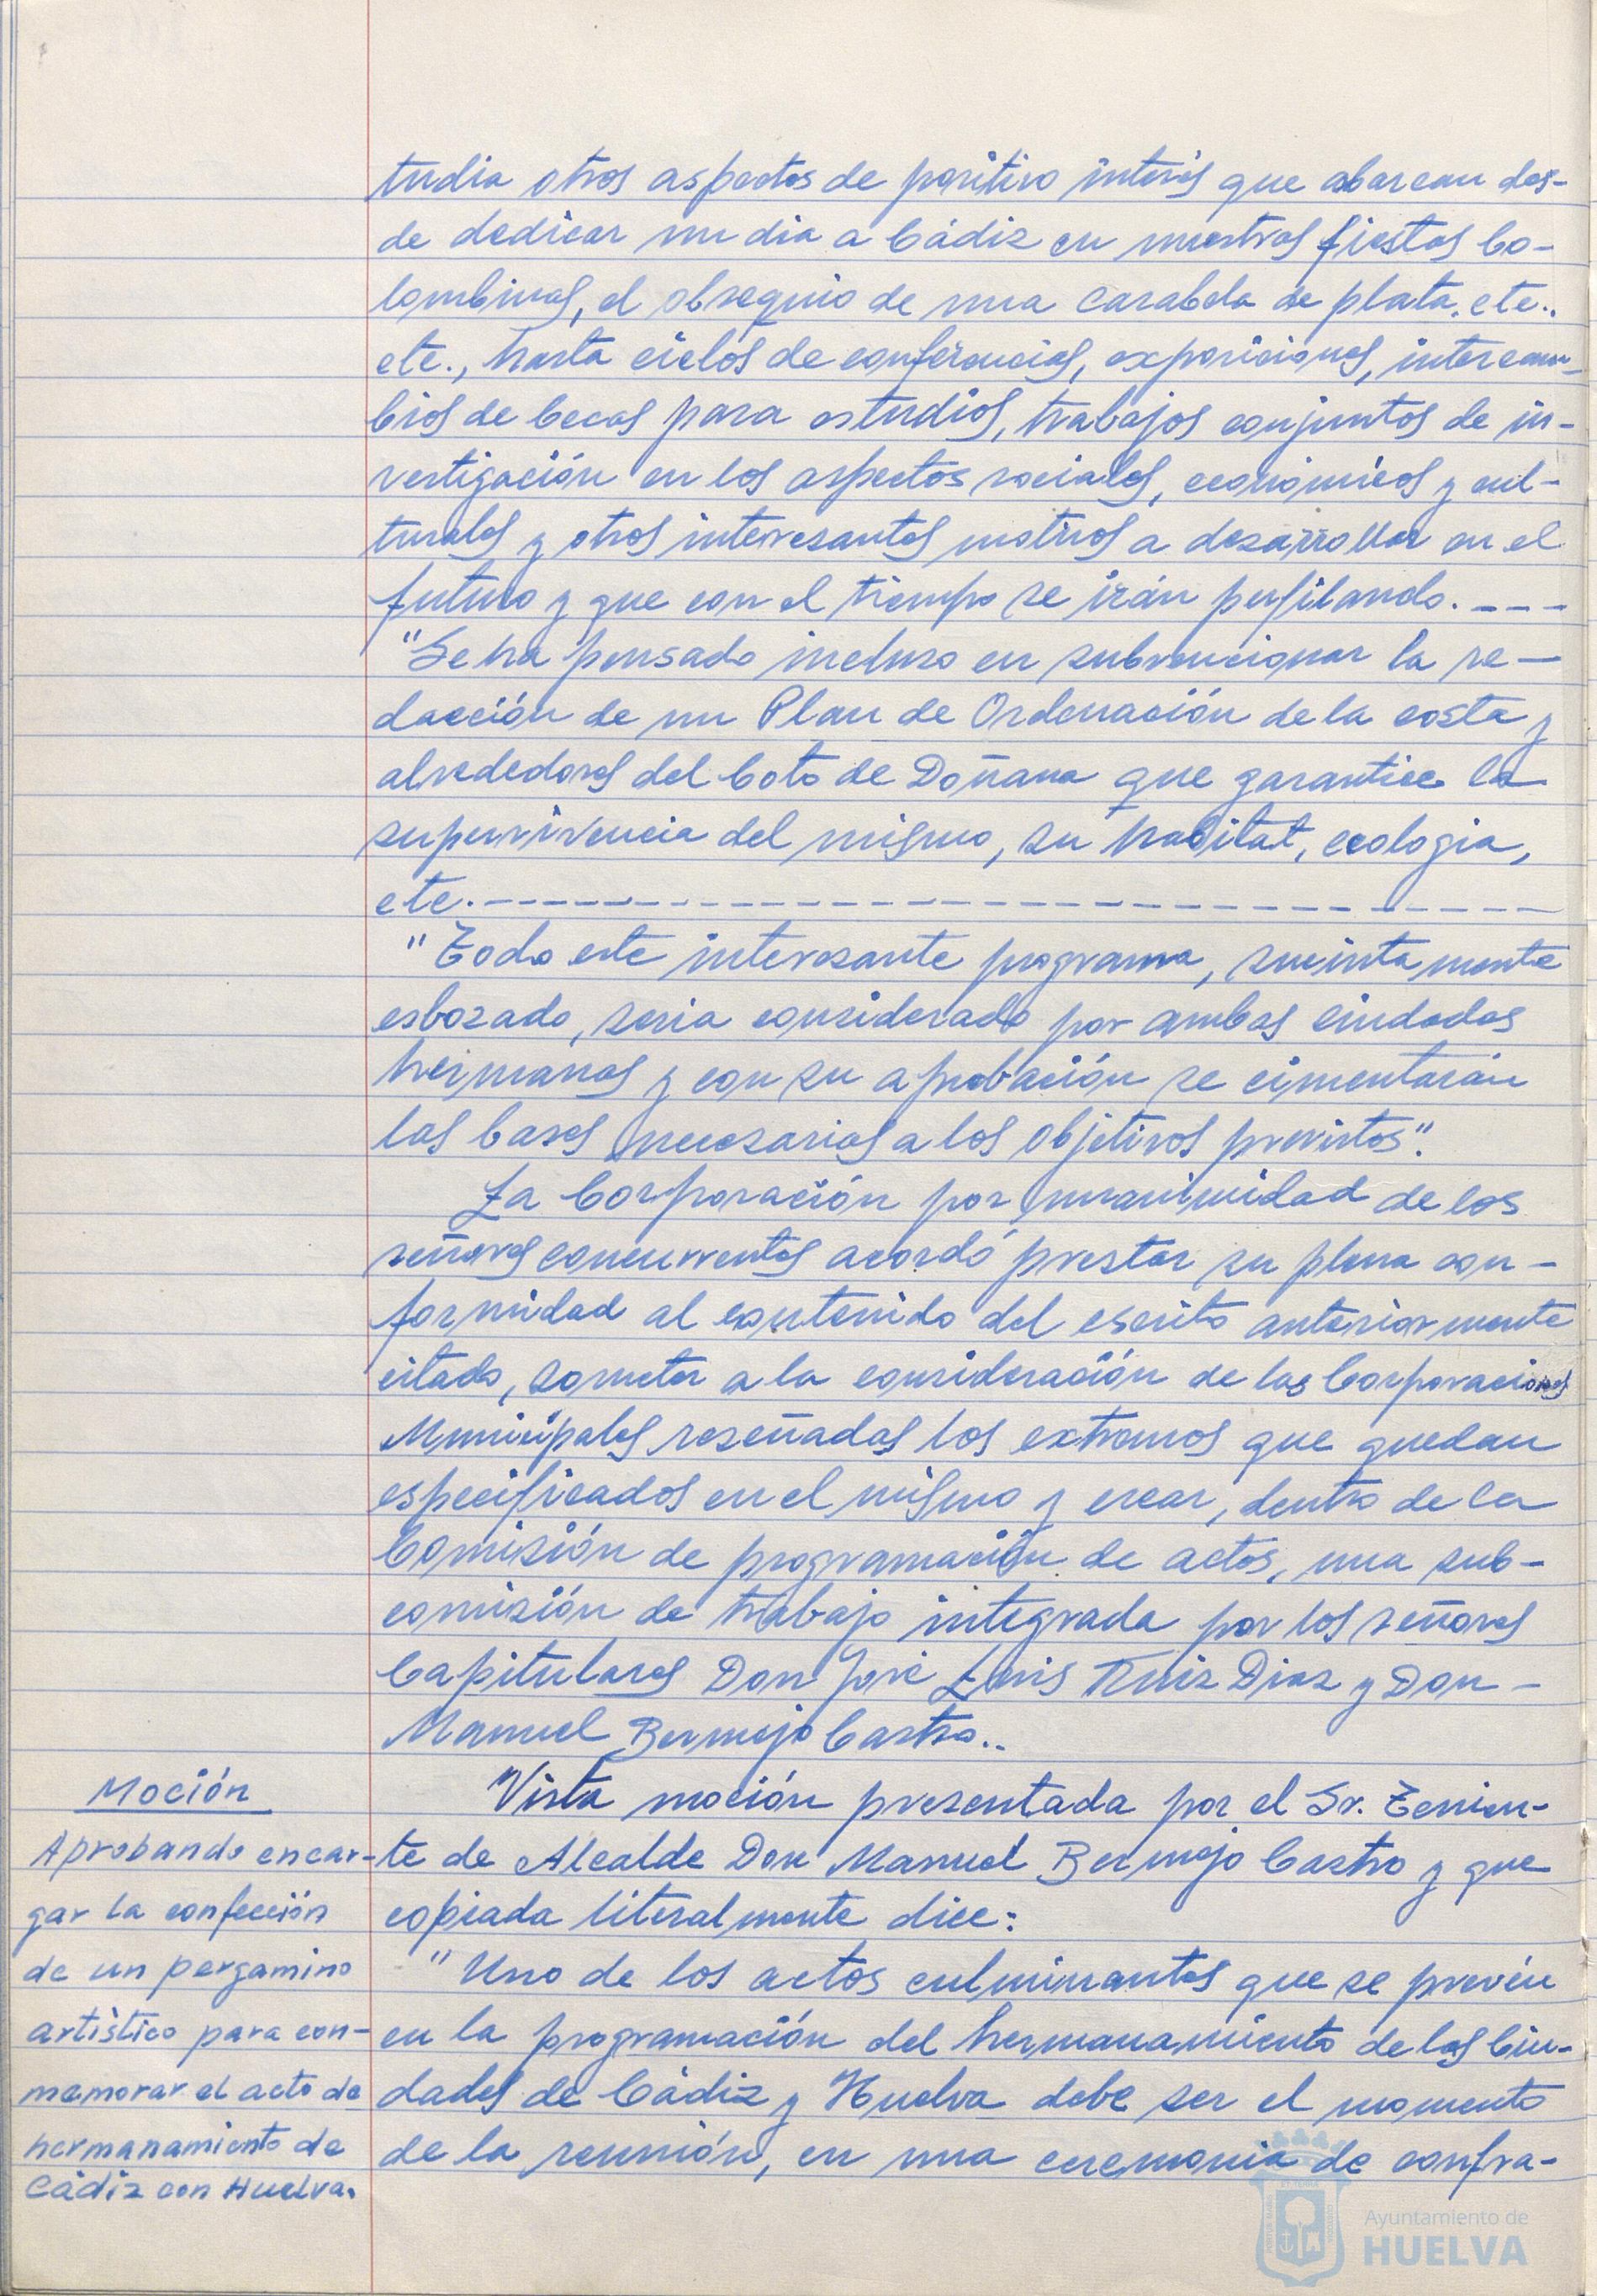 tudia otros aspectos de positivo interés que abarcan des-
de dedicar un dia a Cádiz en nuestras fiestas Co-
lombinas, el obsequio de una carabela de plata, etc..
etc., hasta ciclos de conferencias, exposiciones, intercam-
bios de becas para estudios, trabajos conjuntos de in-
vestigación en los aspectos sociales, económicos y cul-
turales y otros interesantes motivos a desarrollar en el
futuro y que con el tiempo se irán perfilando. - - -
"Se ha pensado incluso en subvencionar la re-
dacción de un Plan de Ordenación de la costa y
alrededores del Coto de Doñana que garantice la
supervivencia del mismo, su habitat, ecologia,
etc. - - - - - - - - - - - - - - - - - - - -
"Todo este interesante programa, sucintamente
esbozado, seria considerado por ambas ciudades
hermanas y con su aprobación se cimentarán
las bases necesarias a los objetivos previstos".
La Corporación por unanimidad de los
señores concurrentes acordó prestar su plena con-
formidad al contenido del escrito anteriormente
citado, someter a la consideración de las Corporaciones
Municipales reseñadas los extremos que quedan
especificados en el mismo y crear, dentro de la
Comisión de programación de actos, una sub-
comisión de trabajo integrada por los señores
Capitulares Don José Luis Ruiz Diaz y Don -
Manuel Bermejo Castro..
Moción
Aprobando encar-
gar la confección
de un pergamino
artistico para con-
memorar el acto de
hermanamiento de
Cádiz con Huelva.
Vista moción presentada por el Sr. Tenien-
te de Alcalde Don Manuel Bermejo Castro y que
copiada literalmente dice:
"Uno de los actos culminantes que se prevén
en la programación del hermanamiento de las Ciu-
dades de Cádiz y Huelva debe ser el momento
de la reunión, en una ceremonia de confra-
Ayuntamiento de
HUELVA